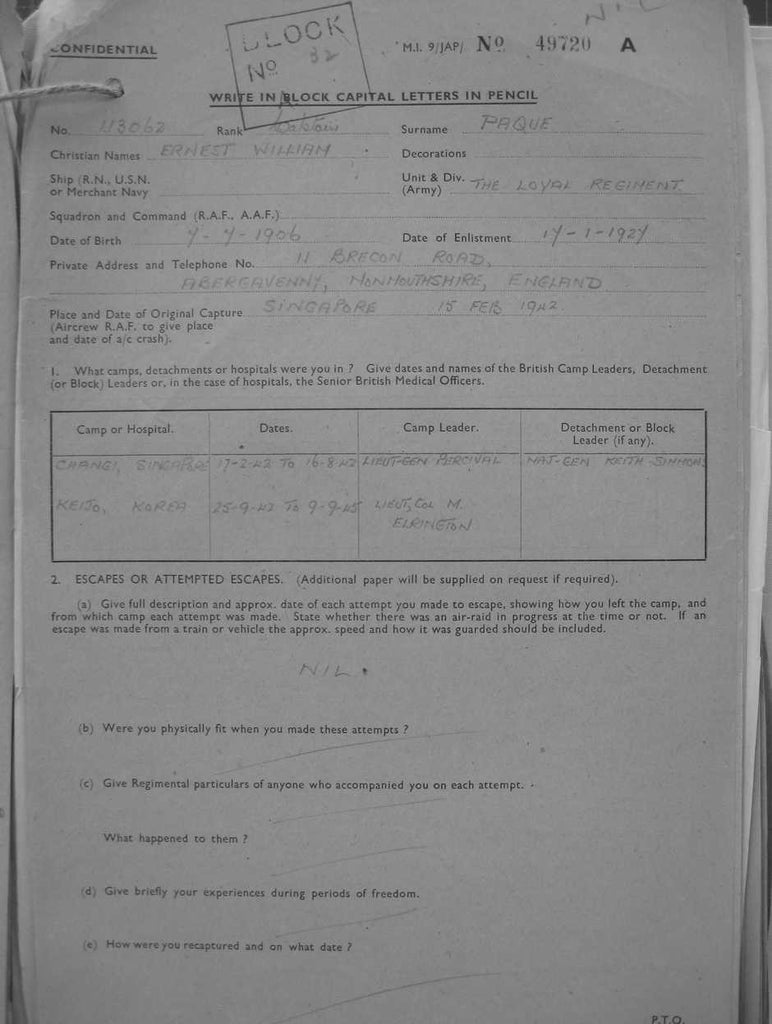 NIL
BLOCK
No 32
CONFIDENTIAL
M.I. 9/JAP/ No 49720 A
WRITE IN BLOCK CAPITAL LETTERS IN PENCIL
No. 113062 Rank Captain Surname PAQUE
Christian Names ERNEST WILLIAM Decorations
Ship (R.N., U.S.N. or Merchant Navy
Unit & Div. (Army) THE LOYAL REGIMENT.
Squadron and Command (R.A.F., A.A.F.)
Date of Birth 7-7-1906 Date of Enlistment 17-1-1927
Private Address and Telephone No. 11 BRECON ROAD,
ABERGAVENNY, MONMOUTHSHIRE, ENGLAND
Place and Date of Original Capture SINGAPORE 15 FEB 1942
(Aircrew R.A.F. to give place
and date of a/c crash).
1. What camps, detachments or hospitals were you in ? Give dates and names of the British Camp Leaders, Detachment
(or Block) Leaders or, in the case of hospitals, the Senior British Medical Officers.
Camp or Hospital. Dates. Camp Leader. Detachment or Block
Leader (if any).
CHANGI, SINGAPORE 17-2-42 TO 16-8-42 LIEUT-GEN PERCIVAL MAJ-GEN KEITH-SIMMONS
KEIJO, KOREA 25-9-42 TO 9-9-45 LIEUT, COL M.
ELRINGTON
2. ESCAPES OR ATTEMPTED ESCAPES. (Additional paper will be supplied on request if required).
(a) Give full description and approx. date of each attempt you made to escape, showing how you left the camp, and
from which camp each attempt was made. State whether there was an air-raid in progress at the time or not. If an
escape was made from a train or vehicle the approx. speed and how it was guarded should be included.
NIL.
(b) Were you physically fit when you made these attempts ?
(c) Give Regimental particulars of anyone who accompanied you on each attempt.
What happened to them ?
(d) Give briefly your experiences during periods of freedom.
(e) How were you recaptured and on what date ?
P.T.O.